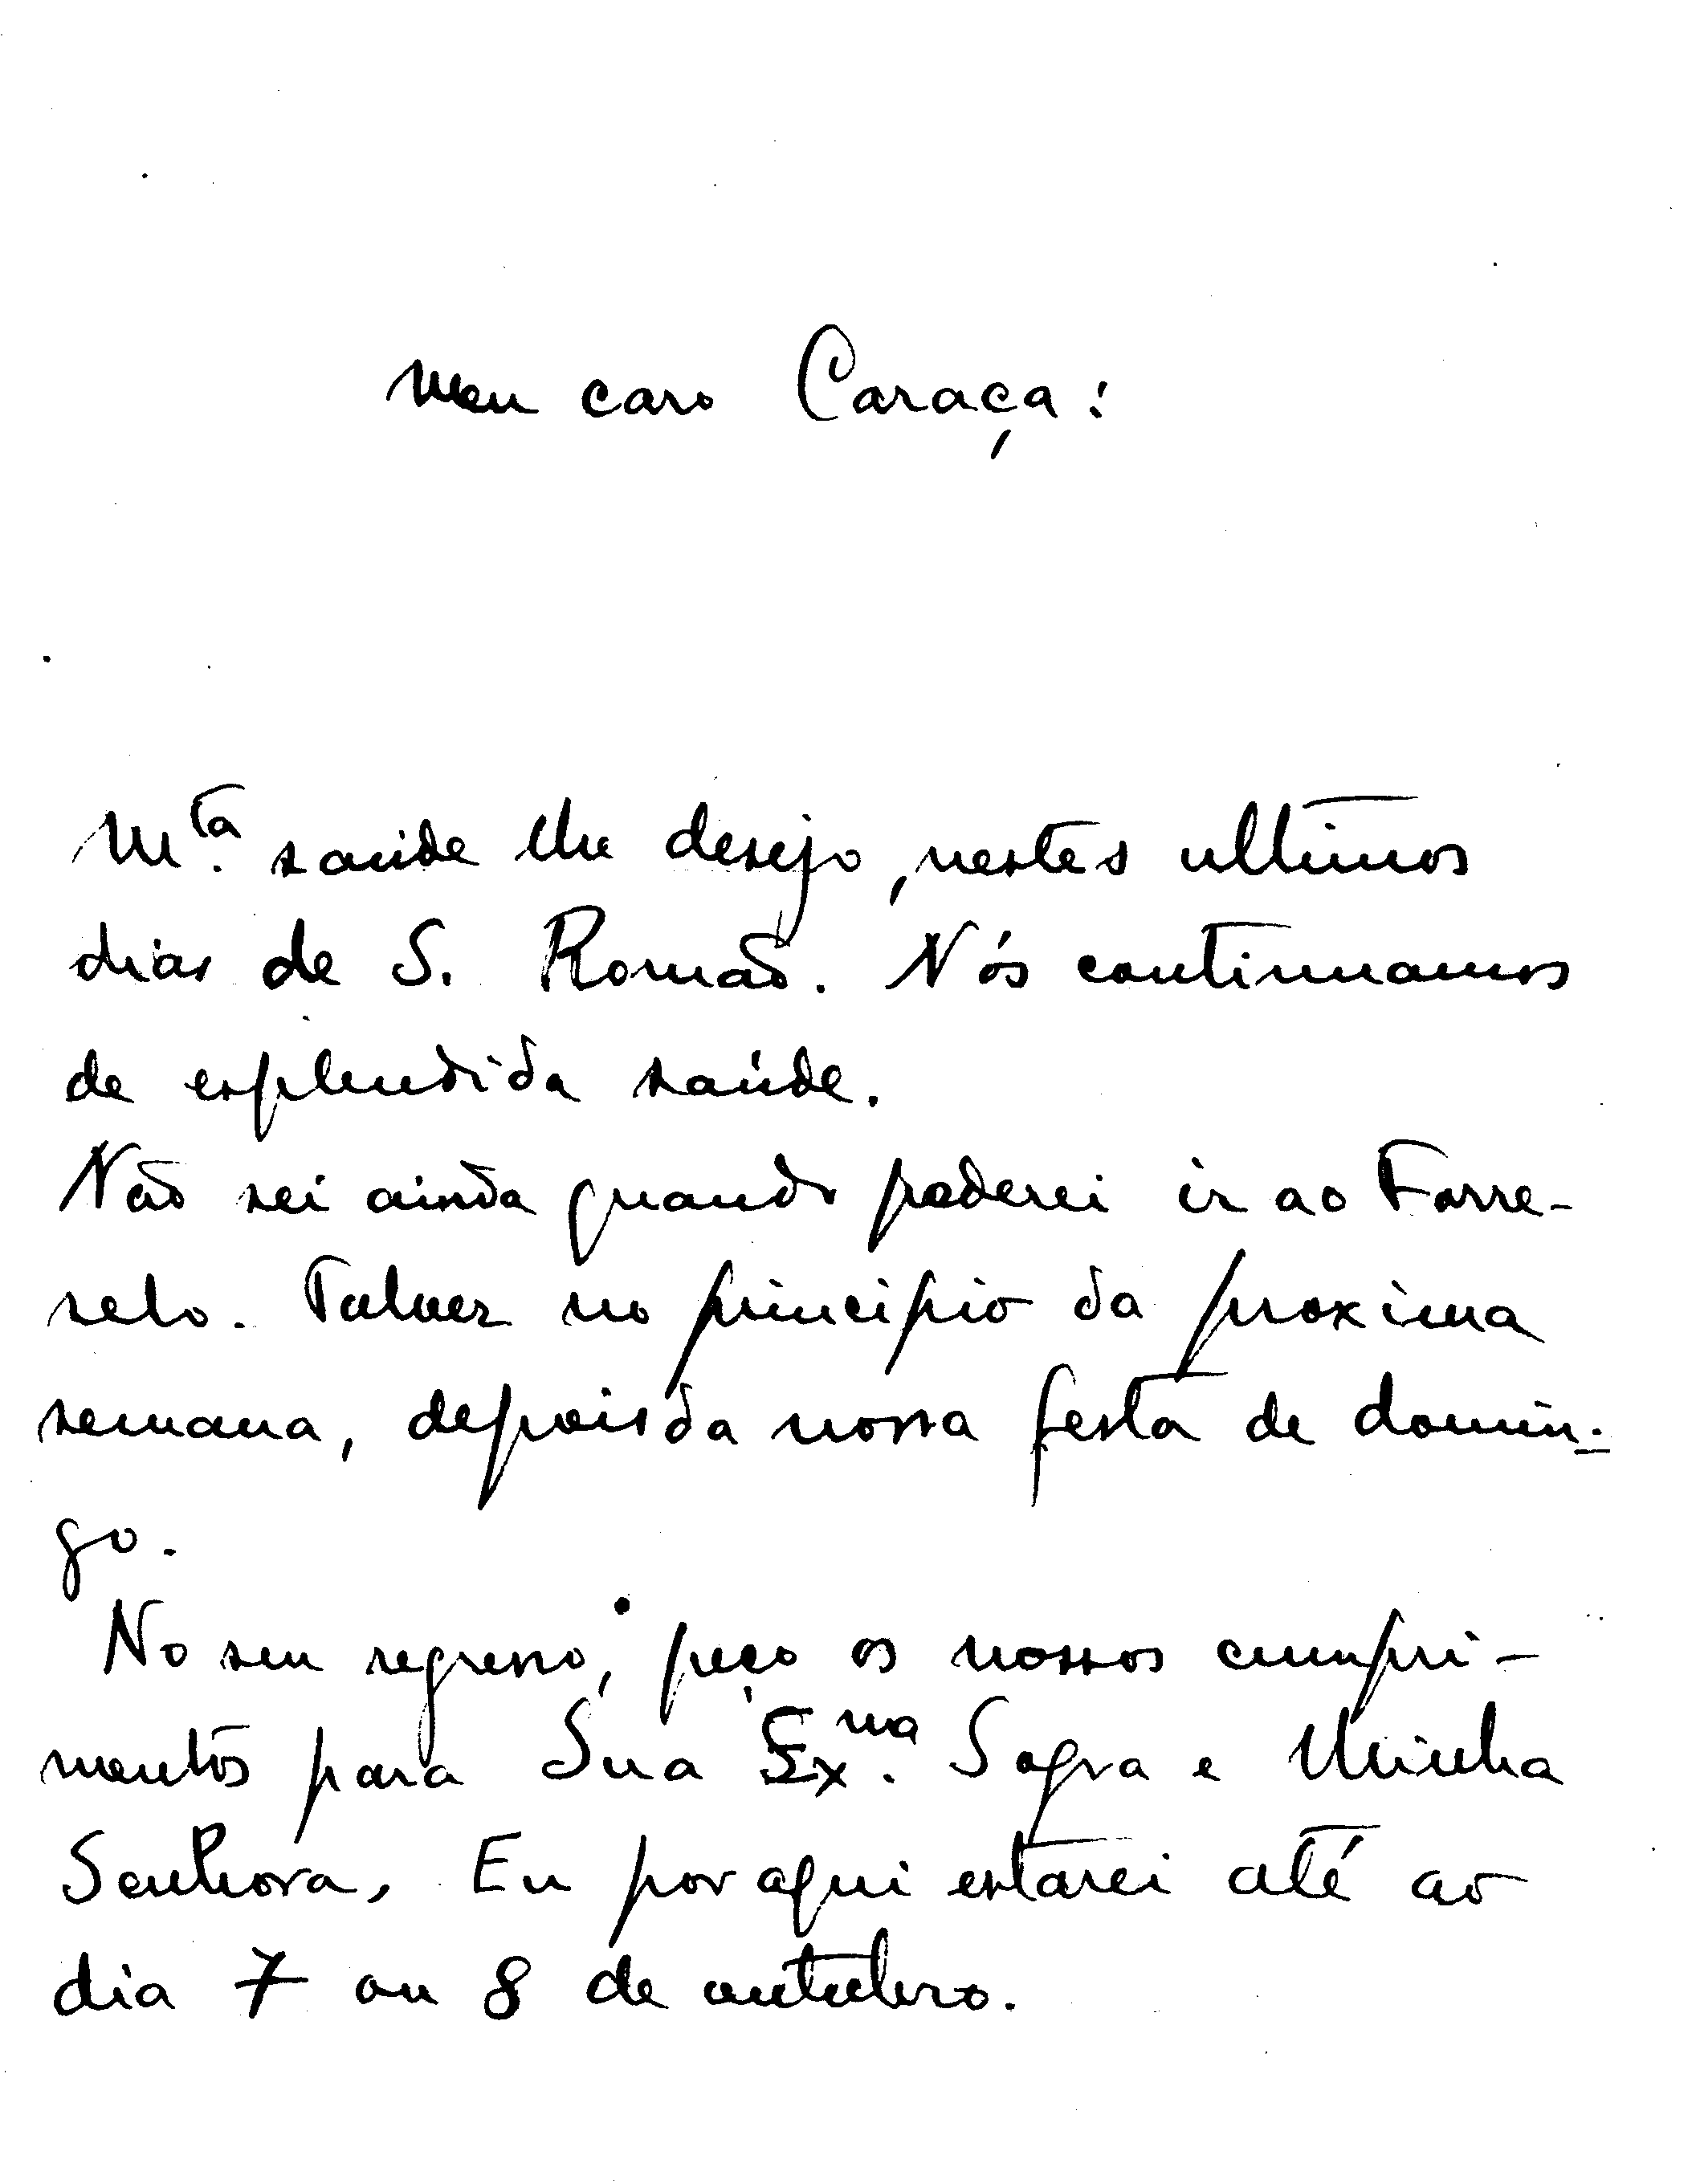 Meu caro Caraça:
M.ta saúde lhe desejo, nestes ultimos
dias de S. Romão. Nós continuamos
de esplendida saúde.
Não sei ainda quando poderei ir ao Torre-
selo. Talvez no principio da proxima
semana, depois da nossa festa de domin-
go.
No seu regresso, peço os nossos cumpri-
mentos para Sua Ex.ma Sogra e Minha
Senhora. Eu por aqui estarei até ao
dia 7 ou 8 de outubro.